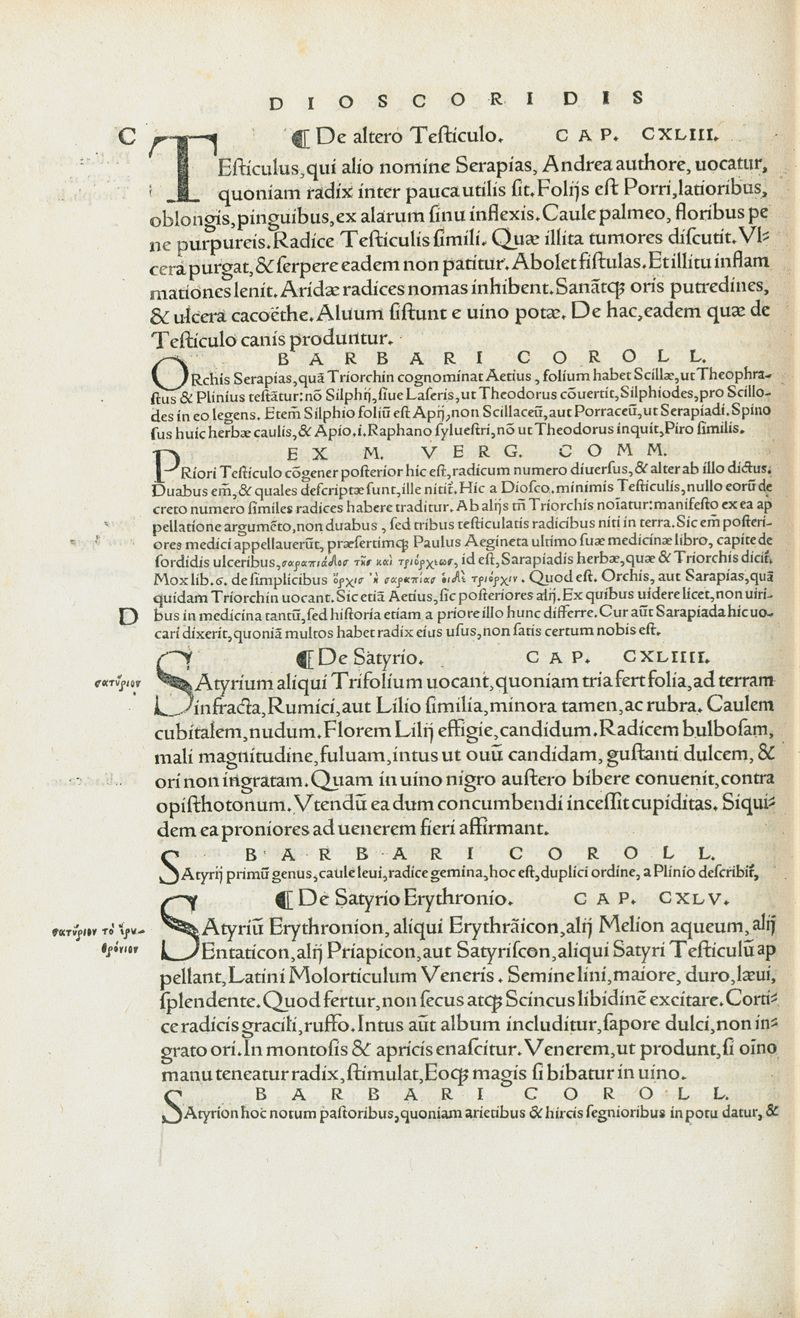 DIOSCORIDIS
C
¶ De altero Testiculo. CAP. CXLIII.
TEsticulus, qui alio nomine Serapias, Andrea authore, uocatur,
quoniam radix inter pauca utilis sit. Folijs est Porri, latioribus,
oblongis, pinguibus, ex alarum sinu inflexis. Caule palmeo, floribus pe
ne purpureis. Radice Testiculis simili. Quæ illita tumores discutit. Vl⸗
cera purgat, & serpere eadem non patitur. Abolet fistulas. Et illitu inflam
mationes lenit. Aridæ radices nomas inhibent. Sanãtq; oris putredines,
& ulcera cacoẽthe. Aluum sistunt e uino potæ. De hac, eadem quæ de
Testiculo canis produntur.
BARBARI COROLL.
ORchis Serapias, quã Triorchin cognominat Aetius, folium habet Scillæ, ut Theophra⸗
stus & Plinius testãtur: nõ Silphij, siue Laseris, ut Theodorus cõuertit, Silphiodes, pro Scillo⸗
des in eo legens. Etem̃ Silphio foliũ est Apij, non Scillaceũ, aut Porraceũ, ut Serapiadi. Spino
sus huic herbæ caulis, & Apio. i. Raphano syluestri, nõ ut Theodorus inquit, Piro similis.
EX M. VERG. COMM.
PRiori Testiculo cõgener posterior hic est, radicum numero diuersus, & alter ab illo dictus.
Duabus em̃, & quales descriptæ sunt, ille nitit̃. Hic a Diosco. minimis Testiculis, nullo eorũ de
creto numero similes radices habere traditur. Ab alijs tñ Triorchis noĩatur: manifesto ex ea ap
pellatione argumẽto, non duabus, sed tribus testiculatis radicibus niti in terra. Sic em̃ posteri⸗
ores medici appellauerũt, præsertimq; Paulus Aegineta ultimo suæ medicinæ libro, capite de
sordidis ulceribus, σαραπιάδος τῆς καὶ τριόρχεως, id est, Sarapiadis herbæ, quæ & Triorchis dicit̃.
Mox lib. 6. de simplicibus ὄρχις ἢ σαραπίας οἱ δὲ τριόρχιν. Quod est. Orchis, aut Sarapias, quã
quidam Triorchin uocant. Sic etiã Aetius, sic posteriores alij. Ex quibus uidere licet, non uiri⸗
D
bus in medicina tantũ, sed historia etiam a priore illo hunc differre. Cur aũt Sarapiada hic uo⸗
cari dixerit, quoniã multos habet radix eius usus, non satis certum nobis est.
¶ De Satyrio. CAP. CXLIIII.
σατύριον
SAtyrium aliqui Trifolium uocant, quoniam tria fert folia, ad terram
infracta, Rumici, aut Lilio similia, minora tamen, ac rubra. Caulem
cubitalem, nudum. Florem Lilij effigie, candidum. Radicem bulbosam,
mali magnitudine, fuluam, intus ut ouũ candidam, gustanti dulcem, &
ori non ingratam. Quam in uino nigro austero bibere conuenit, contra
opisthotonum. Vtendũ ea dum concumbendi incessit cupiditas. Siqui⸗
dem ea proniores ad uenerem fieri affirmant.
BARBARI COROLL.
SAtyrij primũ genus, caule leui, radice gemina, hoc est, duplici ordine, a Plinio describit̃,
¶ De Satyrio Erythronio. CAP. CXLV.
σατύριον τὸ ἐρυ⸗
θρόνιον
SAtyriũ Erythronion, aliqui Erythrãicon, alij Melion aqueum, alij
Entaticon, alij Priapicon, aut Satyriscon, aliqui Satyri Testiculũ ap
pellant, Latini Molorticulum Veneris. Semine lini, maiore, duro, læui,
splendente. Quod fertur, non secus atq; Scincus libidinẽ excitare. Corti⸗
ce radicis gracili, ruffo. Intus aũt album includitur, sapore dulci, non in⸗
grato ori. In montosis & apricis enascitur. Venerem, ut produnt, si oĩno
manu teneatur radix, stimulat, Eoq; magis si bibatur in uino.
BARBARI COROLL.
SAtyrion hoc notum pastoribus, quoniam arietibus & hircis segnioribus in potu datur, &